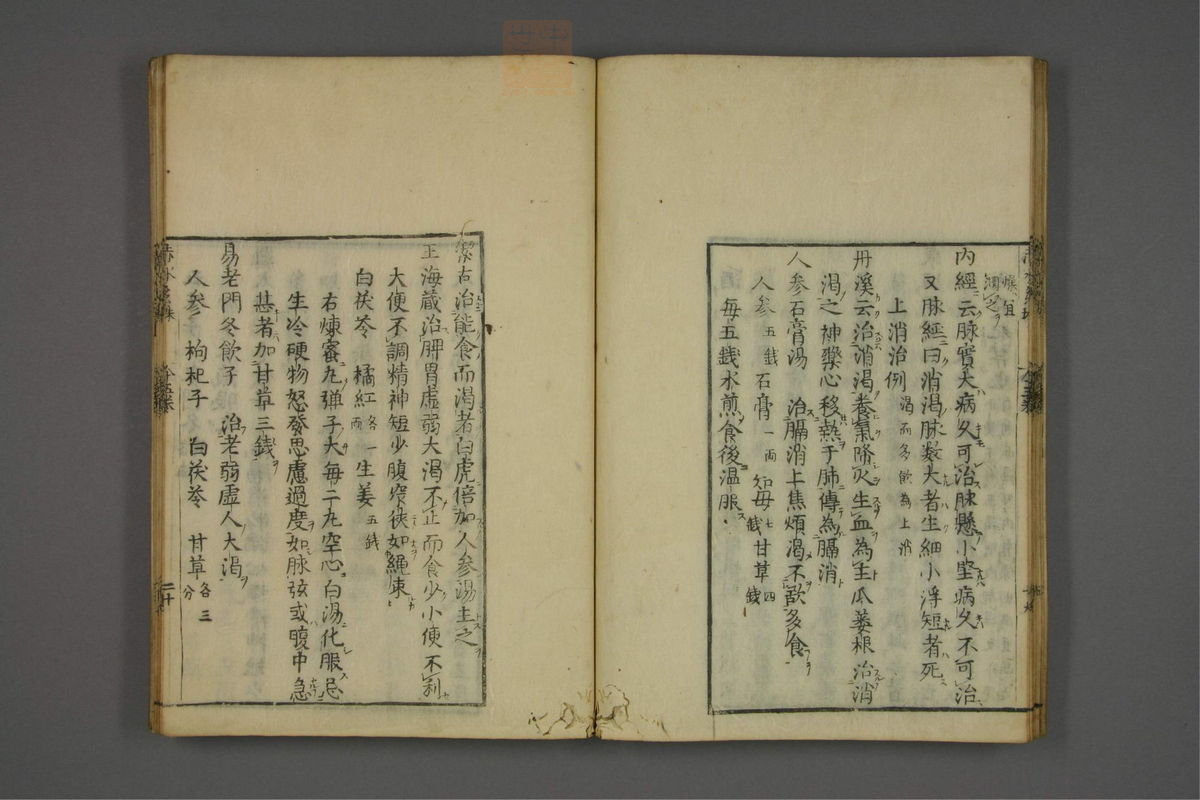 燥宜
潤之
內經云脉實大病久可治脉懸小堅病久不可治
又脉經曰消渴脉数大者生細小浮短者死
上消治例 渴而多飲為上消
丹溪云治消渴養氣降火生血為主瓜蔞根治消
渴之神藥心移熱于肺傳為膈消
人参石膏湯 治膈消上焦煩渴不欲多食
人参五錢石膏一兩 知母七錢甘草四錢
每五錢水煎食後温服
潔古治能食而渴者白虎倍加人参湯主之
王海蔵治脾胃虛弱大渴不止而食少小便不利
大便不調精神短少腹窄狹如繩束
白茯苓 橘紅各一兩生姜五錢
右煉蜜丸弹子大每二丸空心白湯化服忌
生冷硬物怒發思慮過度如脉弦或腹中急
甚者加甘草三錢
易老門冬飲子 治老弱虛人大渴
人参 枸杞子 白茯苓 甘草各三分
赤水玄珠 二十